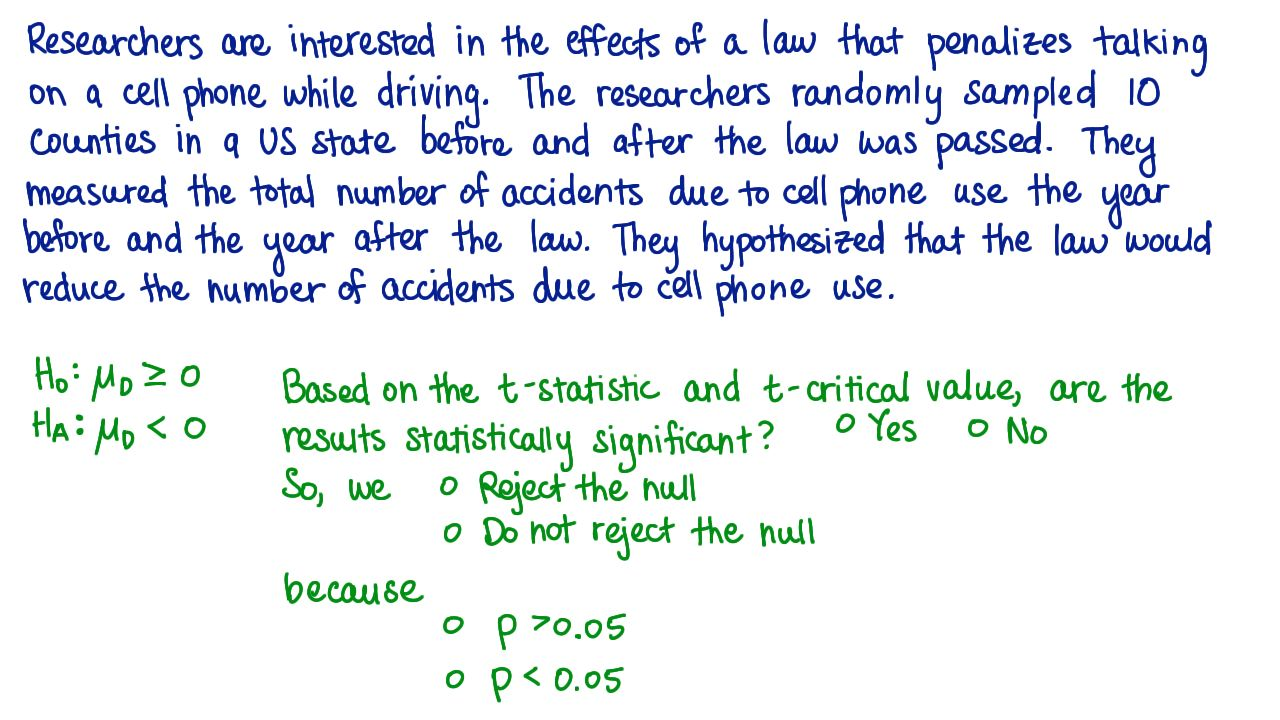 Researchers are interested in the effects of a law that penalizes talking
on a cell phone while driving. The researchers randomly sampled 10
counties in a US state before and after the law was passed. They
measured the total number of accidents due to cell phone use the year
before and the year after the law. They hypothesized that the law would
reduce the number of accidents due to cell phone use.
H₀: μD ≥ 0
HA: μD < 0
Based on the t-statistic and t-critical value, are the
results statistically significant? o Yes o No
So, we o Reject the null
o Do not reject the null
because
o p > 0.05
o p < 0.05